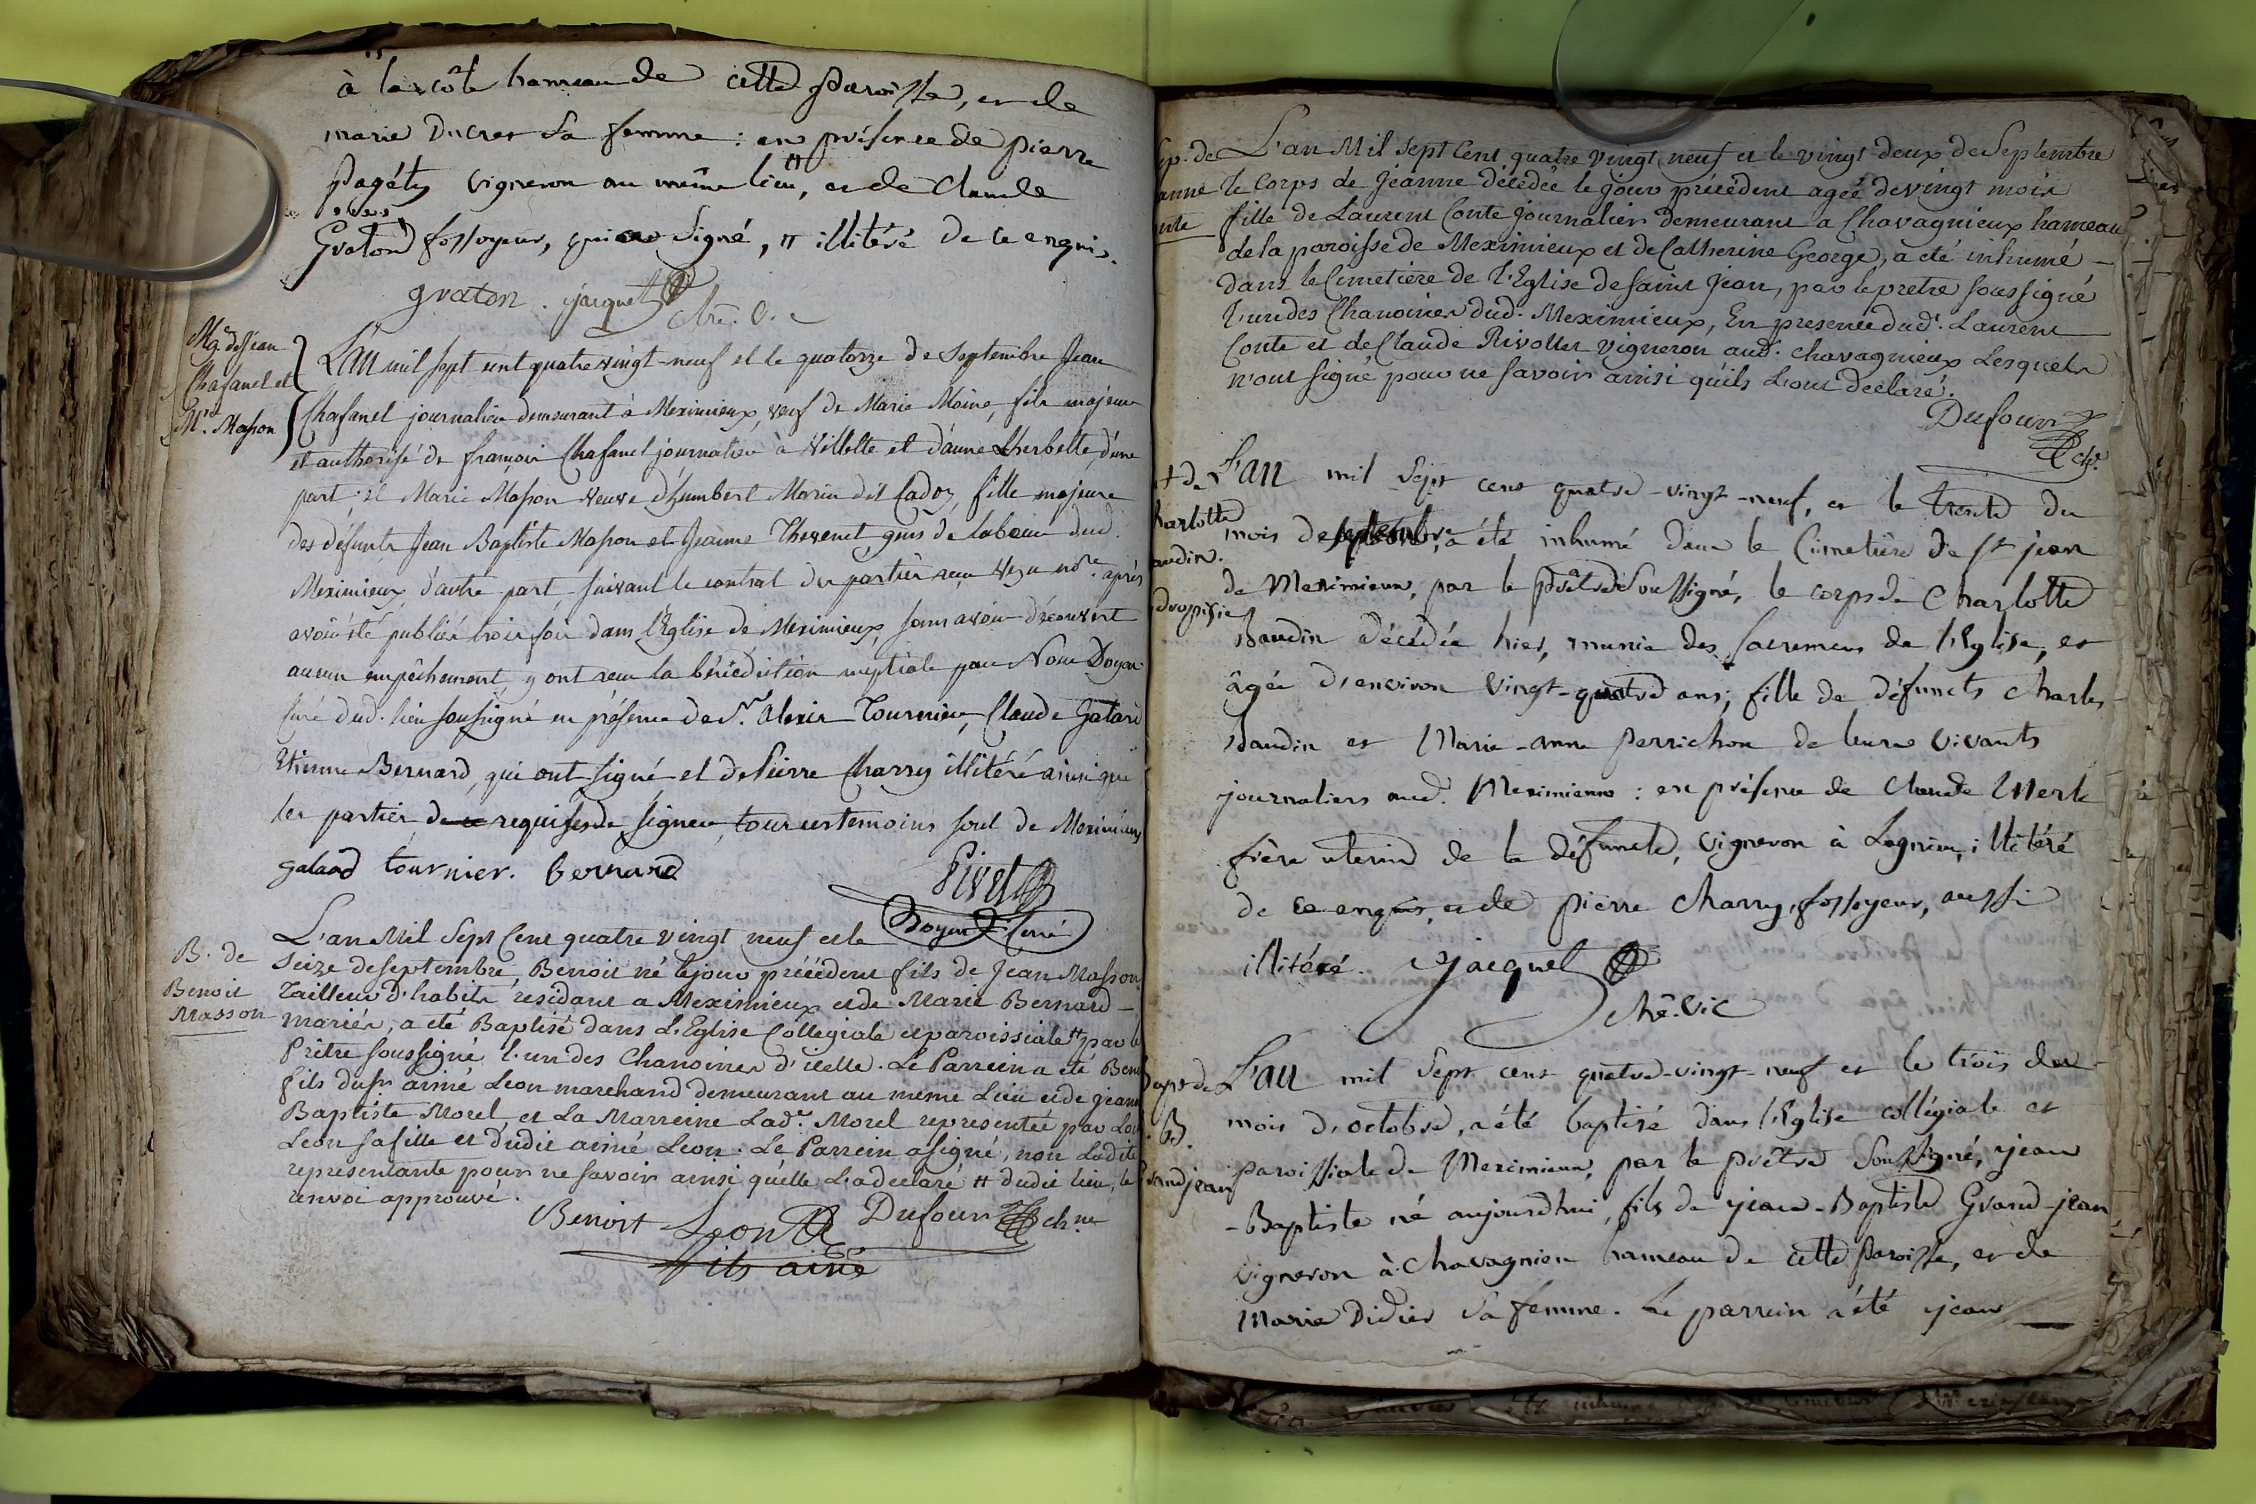 à la côte hameau de cette paroisse, et de
marie Ducret sa femme : en présence de pierre
pagéty vigneron au même lieu, et de Claude
Graton fossoyeur, qui a signé, # illitéré de ce enquis.
graton . jacquet
Mg. de Jean
Chafanel et
Mie. Masson
L'An mil sept cent quatre vingt-neuf et le quatorze de Septembre Jean
Chafanel journalier demeurant à Meximieux, veuf de Marie Moine, fils majeur
et authorisé de françois Chafanel journalier à Villette et d'anne Lherbette, d'une
part ; et Marie Masson veuve d'humbert Morin dit Cadoz, fille majeure
des défunts Jean Baptiste Masson et Jeanne Thevenet, gens de labeur dud.
Meximieux d'autre part suivant le contrat des parties reçu nore. après
avoir été publiés trois fois dans l'Eglise de Meximieux sans avoir découvert
aucun empêchement, y ont reçu la bénédiction nuptiale par Nous Doyen
Curé dud. lieu soussigné en présence de Sr. Alexis Tournier, Claude Galard
Etienne Bernard, qui ont signé et de Pierre Charry illitéré ainsi que
les parties de ce requises de signer, tous les temoins sont de Meximieux
galaad tournier. bernard
Pivet
Doyen Curé
B. de
Benoit
Masson
L'an Mil Sept Cent quatre vingt neuf et le
seize de septembre, Benoit né le jour précédent fils de Jean Masson
Tailleur d'habits residant a Meximieux et de Marie Bernard -
mariés, a eté Baptisé dans L'Eglise Collegiale et paroissiale # par le
Prêtre soussigné l'un des Chanoines d'icelle. Le Parrein a été Ben
fils du sr ainé Leon marchand demeurant au meme Lieu et de jeanne
Baptiste Morel, et La Marreine Lade. Morel representée par
Leon sa fille et dudit ainé Leon. Le Parrein a signé, non Ladite
representante pour ne savoir ainsi qu'elle L'a declaré # dudit lieu, le
renvoi approuvé.
Benoit Leon
fils ainé
Dufour chne
Sep. de
anne
nte
L'an Mil Sept Cent quatre vingt neuf et le vingt deux de Septembre
le Corps de Jeanne décédée le jour précédent agée de vingt mois
fille de Laurent Conte journalier demeurant a Chavagnieux hameau
de la paroisse de Meximieux et de Catherine George, a eté inhumé -
dans le Cimetiere de L'Eglise de saint Jean, par le pretre soussigné
l'un des Chanoines dud. Meximieux, En presence dudt. Laurent
Conte et de Claude Rivollet vigneron aud. chavagnieux Lesquels
n'ont signé pour ne savoir ainsi qu'ils L'ont declaré.
Dufour
che.
+ de
harlotte
audin.
dropisie
L'an mil sept cent quatre-vingt-neuf, et le trente du
mois de septembre, a été inhumé dans le Cimetière de St jean
de Meximieux, par le prêtre soussigné, le corps de Charlotte
Baudin décédée hier, munie des sacremens de l'Eglise, et
âgée d'environ vingt-quatre ans ; fille de défuncts Charles
Baudin et Marie-anne perrichon de leurs vivants
journaliers aud. Meximieux : en présence de Claude Merle
frère uterin de la défuncte, vigneron à Lagnieu, illitéré
de ce enquis, et de pierre Charry, fossoyeur, aussi
illitéré. jacquet
chê. vic
Bapt de
. B.
Grandjean
L'an mil sept cent quatre-vingt-neuf et le trois du
mois d'octobre, a été baptisé dans l'Eglise collégiale et
paroissiale de Meximieux, par le prêtre soussigné, jean
-Baptiste né aujourdhui, fils de jean-Baptiste Grand-jean
vigneron à Chavagnieu hameau de cette paroisse, et de
Marie Didier sa femme. Le parrein a été jean